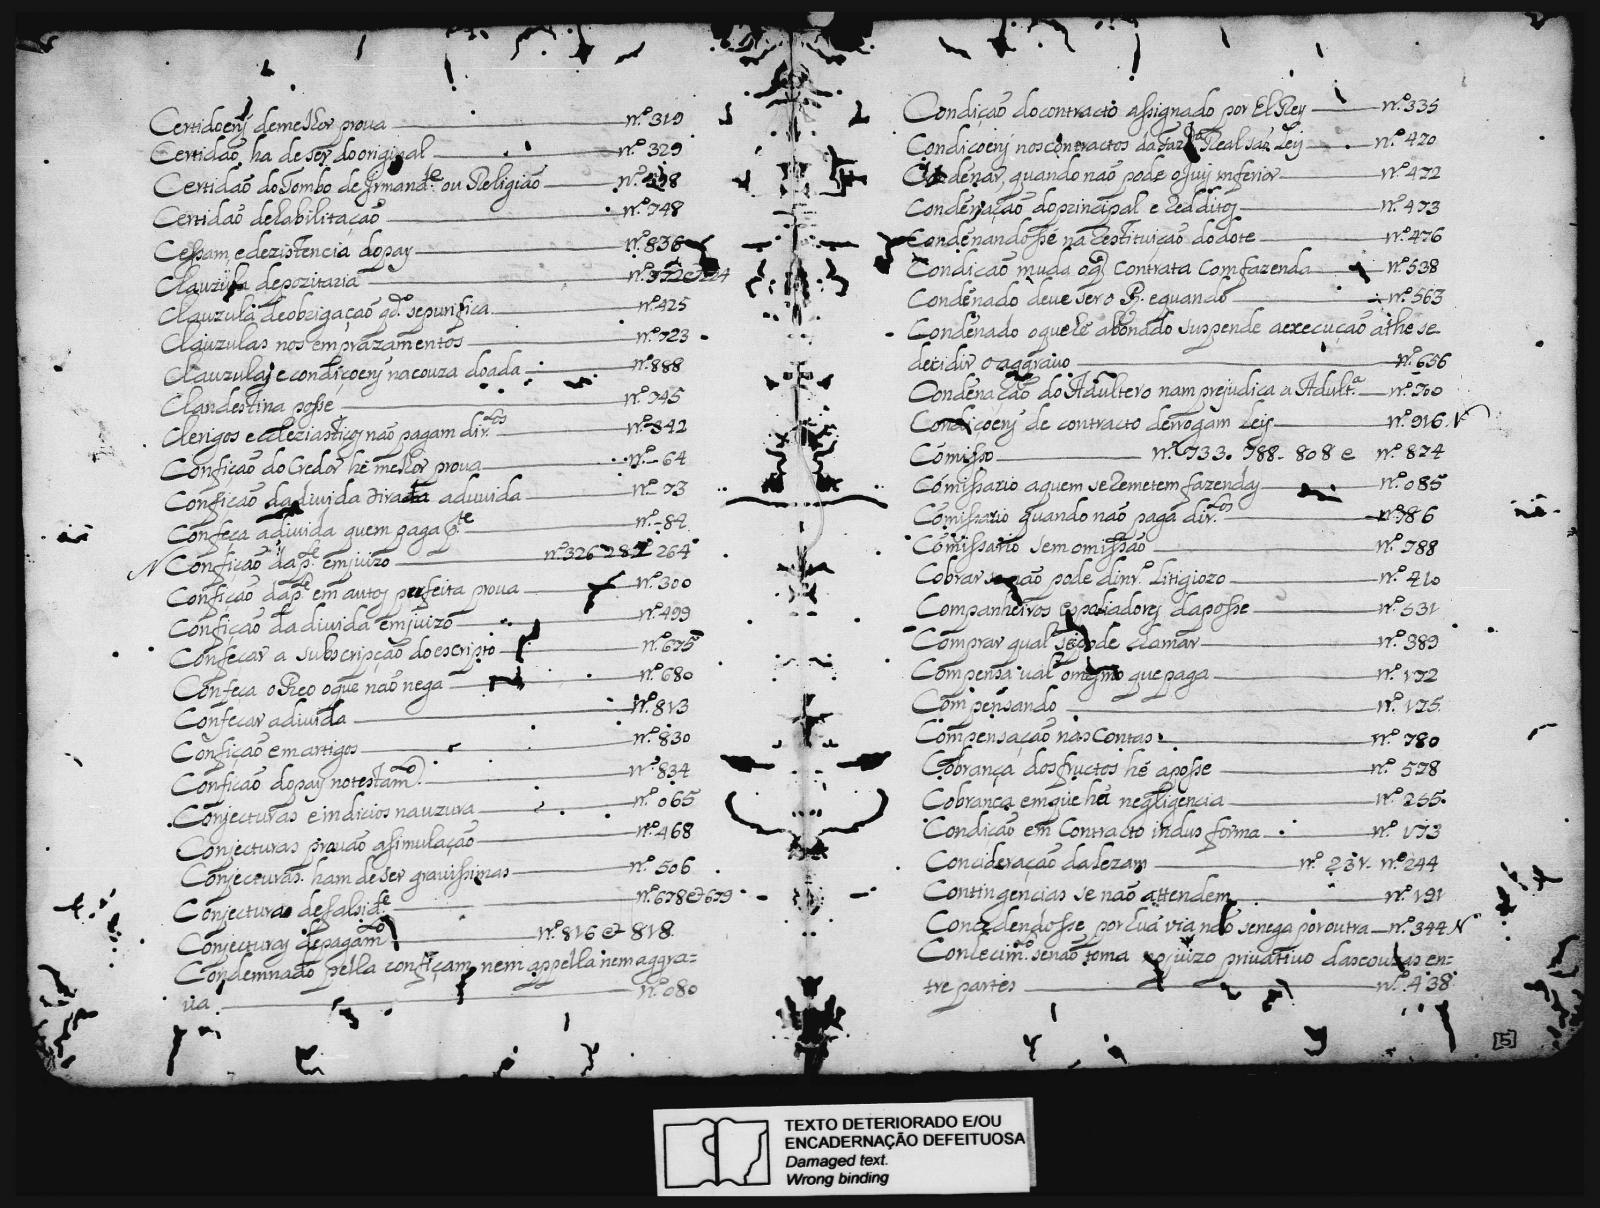 Certidoens de melhor prova nº. 319
Certidaõ ha de ser do original nº. 329
Certidaõ do Tombo de Irmandᵉ. ou Religiaõ
Certidaõ de habilitaçaõ nº. 748
Cessam e dezistencia do pay nº. 836
Clauzula depozitaria
Clauzula de obrigaçaõ qdº. se purifica nº. 425
Clauzulas nos emprazamentos nº. 723
Clauzulas e condiçoens na couza doada nº. 888
Clandestina posse nº. 745
Clerigos e eccleziasticos naõ pagam dir.ᵗᵒˢ nº. 842
Confiçaõ do Credor he melhor prova nº. 64
Confiçaõ da divida tirada a duvida nº. 73
Confeça a divida quem paga pᵗᵉ. nº. 84
N Confiçaõ da pᵗᵉ. em juizo nº. 326 282 264
Confiçaõ da pᵗᵉ. em autos perfeita prova nº. 300
Confiçaõ da divida em juizo nº. 499
Confeçar a subscripçaõ do escripto nº. 675
Confeça o Reo o que naõ nega nº. 680
Confeçar a divida nº. 813
Confiçaõ em artigos nº. 830
Confiçaõ do pay no testamᵗᵒ. nº. 834
Conjecturas e indicios na uzura nº. 065
Conjecturas provaõ a simulaçaõ nº. 468
Conjecturas. ham de ser gravissimas nº. 506
Conjecturas de falsidᵉ. nº. 678 & 679
Conjecturas de pagamᵗᵒ nº. 816 & 818
Condemnado pella confiçam nem appella nem aggra=
va nº. 080
Condiçaõ do contracto assignado por El Rey nº. 335
Condiçoens nos contractos da fazᵈᵃ Real saõ Ley nº. 420
Condenar, quando naõ pode o juiz inferior nº. 472
Condenaçaõ do principal e redditos nº. 473
Condenandosse na restituiçaõ do dote nº. 476
Condiçaõ muda o q̃ contrata com fazenda nº. 538
Condenado deve ser o R. e quando nº. 563
Condenado o que he abonado suspende a execuçaõ athe se
decidir o aggravo nº. 656
Condenaçaõ do Adultero nam prejudica a Adultᵃ. nº. 700
Condiçoens de contracto derrogam Leys nº. 916. N
Comisso nº. 733. 788. 808 e nº. 824
Comissario a quem se remetem fazendas nº. 085
Comissario quando naõ paga dir.ᵗᵒˢ nº. 786
Comissario sem omissaõ nº. 788
Cobrar se naõ pode dinrº. litigiozo nº. 410
Companheiros espoliadores da posse nº. 531
Comprar qual se pode chamar nº. 389
Compensa val o mesmo que paga nº. 172
Compensando nº. 175
Compensaçaõ nas contas nº. 780
Cobrança dos fructos he a posse nº. 578
Cobrança em que ha negligencia nº. 255
Condiçaõ em Contracto indus forma nº. 173
Concideraçaõ da lezam nº. 231. nº. 244
Contingencias se naõ attendem nº. 191
Concedendosse por huã via naõ se nega por outra nº. 344 N
Conhecimᵗᵒ. se naõ toma no juizo privativo das couzas en=
tre partes nº. 438
[5]
TEXTO DETERIORADO E/OU
ENCADERNAÇÃO DEFEITUOSA
Damaged text.
Wrong binding